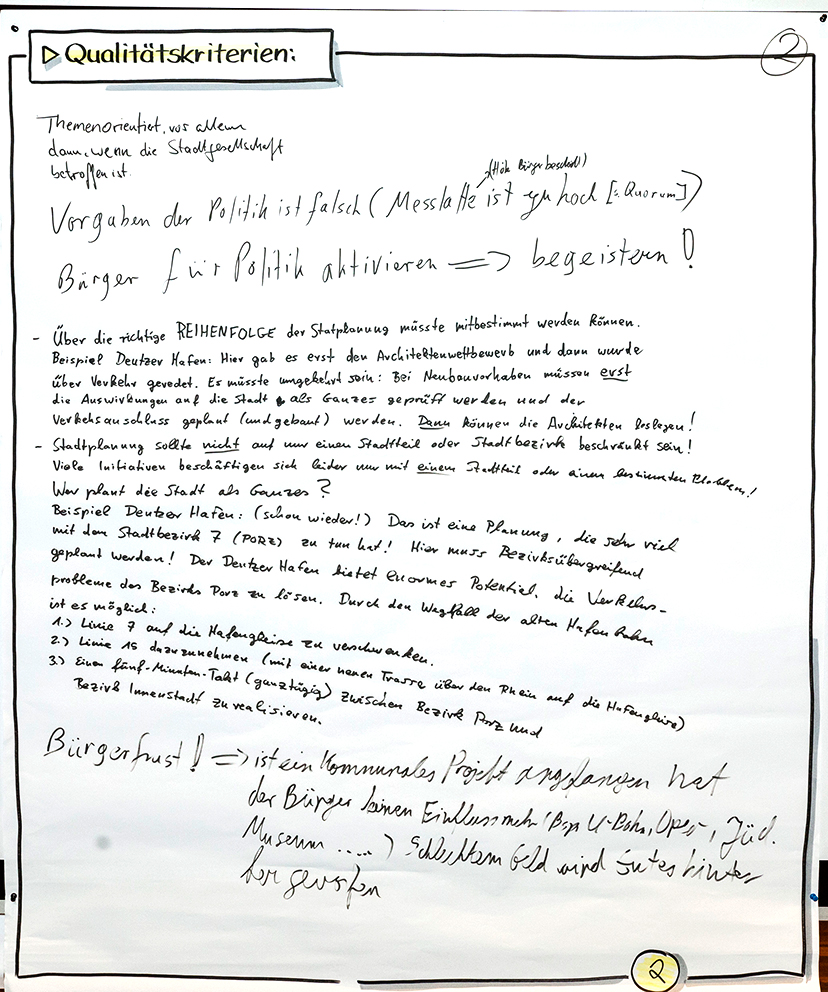 ▷ Qualitätskriterien:
2
Themenorientiert, vor allem
dann, wenn die Stadtgesellschaft
betroffen ist.
(Höh. Bürgerbescheid)
Vorgaben der Politik ist falsch (Messlatte ist zu hoch [: Quorum])
Bürger für Politik aktivieren => begeistern!
- Über die richtige REIHENFOLGE der Statplanung müsste mitbestimmt werden können.
Beispiel Deutzer Hafen: Hier gab es erst den Architektenwettbewerb und dann wurde
über Verkehr geredet. Es müsste umgekehrt sein: Bei Neubauvorhaben müssen erst
die Auswirkungen auf die Stadt als Ganzes geprüft werden und der
Verkehsanschluss geplant (und gebaut) werden. Dann können die Architekten loslegen!
- Stadtplanung sollte nicht auf nur einen Stadtteil oder Stadtbezirk beschränkt sein!
Viele Initiativen beschäftigen sich leider nur mit einem Stadtteil oder einem bestimmten Problem!
Wer plant die Stadt als Ganzes?
Beispiel Deutzer Hafen: (schon wieder!) Das ist eine Planung, die sehr viel
mit dem Stadtbezirk 7 (PORZ) zu tun hat! Hier muss Bezirksübergreifend
geplant werden! Der Deutzer Hafen bietet enormes Potential, die Verkehrs-
probleme des Bezirks Porz zu lösen. Durch den Wegfall der alten Hafenbahn
ist es möglich:
1.) Linie 7 auf die Hafengleise zu verschwenken.
2.) Linie 15 dazuzunehmen (mit einer neuen Trasse über den Rhein auf die Hafengleise)
3.) Einen fünf-Minuten-Takt (ganztägig) zwischen Bezirk Porz und
Bezirk Innenstadt zu realisieren.
Bürgerfrust! => ist ein Kommunales Projekt angefangen hat
der Bürger keinen Einfluss mehr (Bsp. U-Bahn, Oper, Jüd.
Museum .....) Schlechtem Geld wird gutes hinter
her geworfen
2